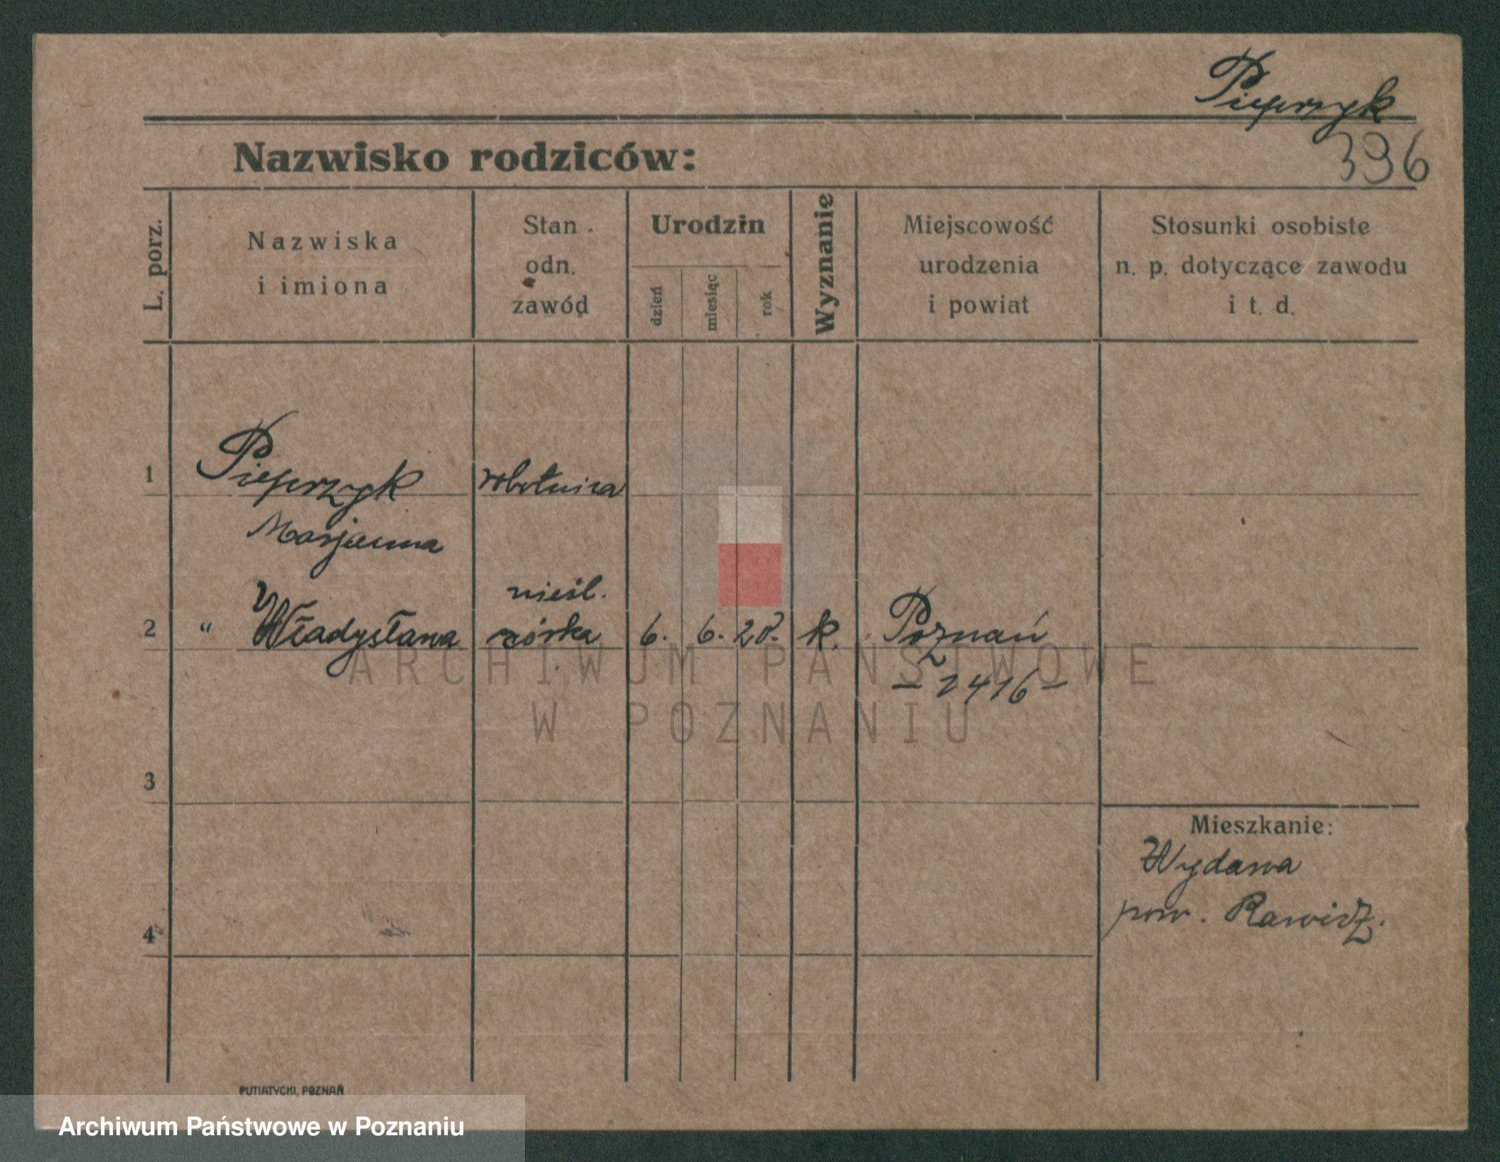 Pieprzyk
396
Nazwisko rodziców:
L. porz.
Nazwiska
i imiona
Stan
odn.
zawód
Urodzin
dzień
miesiąc
rok
Wyznanie
Miejscowość
urodzenia
i powiat
Stosunki osobiste
n. p. dotyczące zawodu
i t. d.
1 Pieprzyk robotnica
Marjanna
nieśl.
2 " Władysława córka 6. 6. 20. k. Poznań
- 2416 -
ARCHIWUM PAŃSTWOWE
W POZNANIU
3
Mieszkanie:
Wydawa
pow. Rawicz.
4
PUTIATYCKI, POZNAŃ
Archiwum Państwowe w Poznaniu